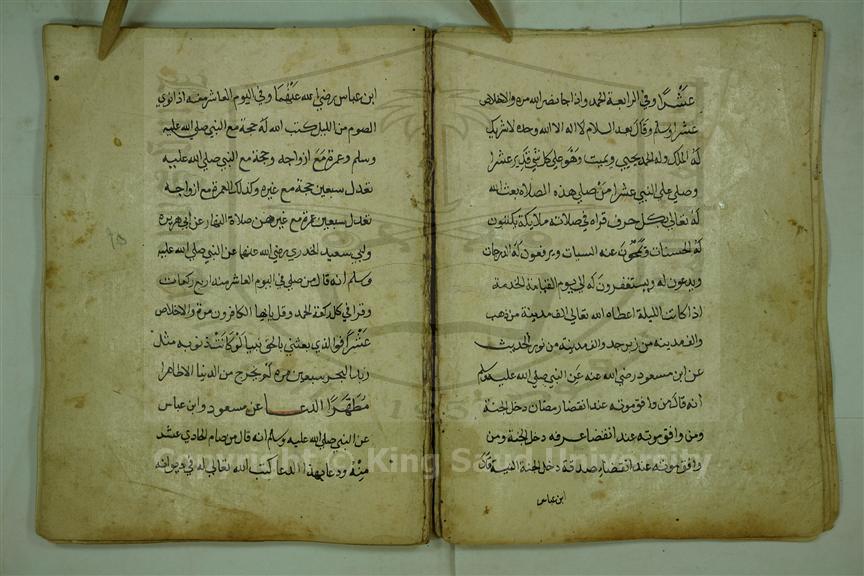 عَشْرًا وفي الرابعة الحمد واذا جا نصر الله مرة والاخلاص
عشرا وسلم وقال بعد السلام لا اله الا الله وحده لا شريك
له الملك وله الحمد يحيي ويميت وهو على كل شي قدير عشرا
وصلى على النبي عشرا من صلى هذه الصلاة بعث الله
له تعالى بكل حرف قراه في صلاته ملايكة يكتبون
له الحسنات ويمحون عنه السيات ويرفعون له الدرجات
ويدعون له ويستغفرون له الي يوم القيامة الخدمة
اذا كانت الليلة اعطاه الله تعالى الف مدينة من ذهب
والف مدينة من زبرجد والف مدينة من نور الحديث
عن ابن مسعود رضي الله عنه عن النبي صلى الله عليه وسلم
انه قال من وافق موته عند انقضا رمضان دخل الجنة
ومن وافق موته عند انقضا عرفه دخل الجنة ومن
وافق موته عند انقضاء صدقة دخل الجنة النية قال
ابن عباس
ابن عباس رضي الله عنهما وفي اليوم العاشر منه اذا نوي
الصوم من الليل كتب الله له حجة مع النبي صلى الله عليه
وسلم وعمرة مع ازواجه وحجة مع النبي صلى الله عليه
تعدل سبعين حجة مع غيره وكذلك العمرة مع ازواجه
تعدل سبعين عمرة مع غيرهن صلاة النهار عن ابي هريرة
وابي سعيد الخدري رضي الله عنهما عن النبي صلى الله عليه
وسلم انه قال من صلى في اليوم العاشر منه اربع ركعات
وقرا في كل ركعة الحمد وقل يا ايها الكافرون مرة والاخلاص
عَشْرًا فوالذي بعثني بالحق نبيا لو كانت ذنوبه مثل
زبد البحر سبعين مرة لم يخرج من الدنيا الا طاهرا
مُطَهَّرًا الدعا عن مسعود وابن عباس
عن النبي صلى الله عليه وسلم انه قال من صام الحادي عشر
منه ودعا بهذا الدعا كتب الله تعالى له في ديوانه
Copyright © King Saud University
1957